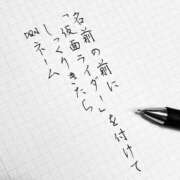 名前の前に
「仮面ライダー」を付けて
しっくりきたら
DQNネーム